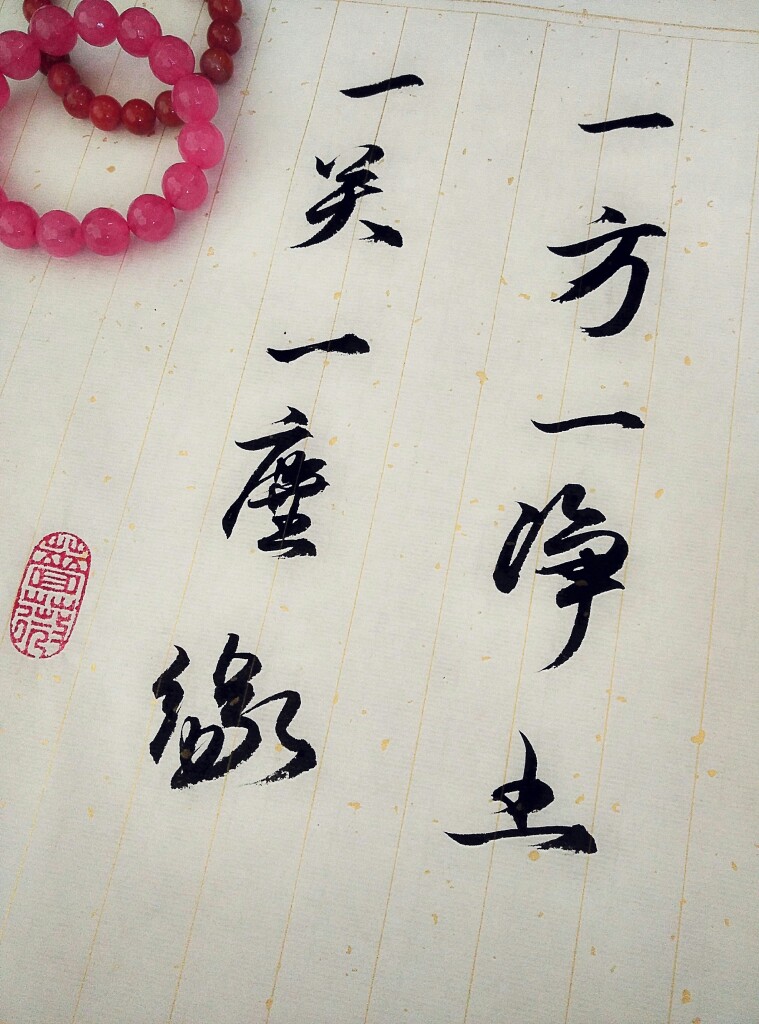 一方一净土
一笑一塵緣